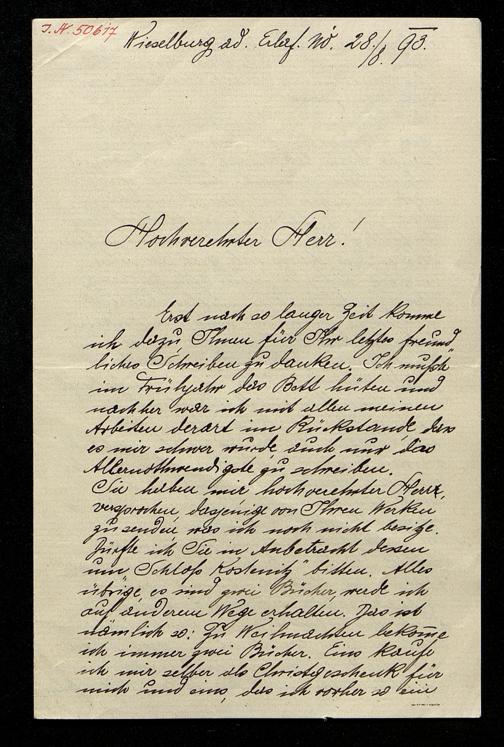 J.N. 50617
Wieselburg a/d. Erlaf. Nö. 28./8. 93.
Hochverehrter Herr!
Erst nach so langer Zeit komme
ich dazu Ihnen für Ihr letztes freund
liches Schreiben zu danken. Ich mußte
im Frühjahr das Bett hüten und
nachher war ich mit allen meinen
Arbeiten derart im Rückstande, dass
es mir schwer wurde, auch nur das
Allernothwendigste zu schreiben.
Sie haben mir hochverehrter Herr,
versprochen dasjenige von Ihren Werken
zu senden was ich noch nicht besitze.
Dürfte ich Sie in Anbetracht dessen
um „Schloß Kostenitz" bitten. Alles
übrige, es sind zwei Bücher, werde ich
auf anderem Wege erhalten. Das ist
nämlich so: Zu Weihnachten bekom̄e
ich immer zwei Bücher. Eins kaufe
ich mir selber als Christgeschenk für
mich und eins, das ich vorher so ein